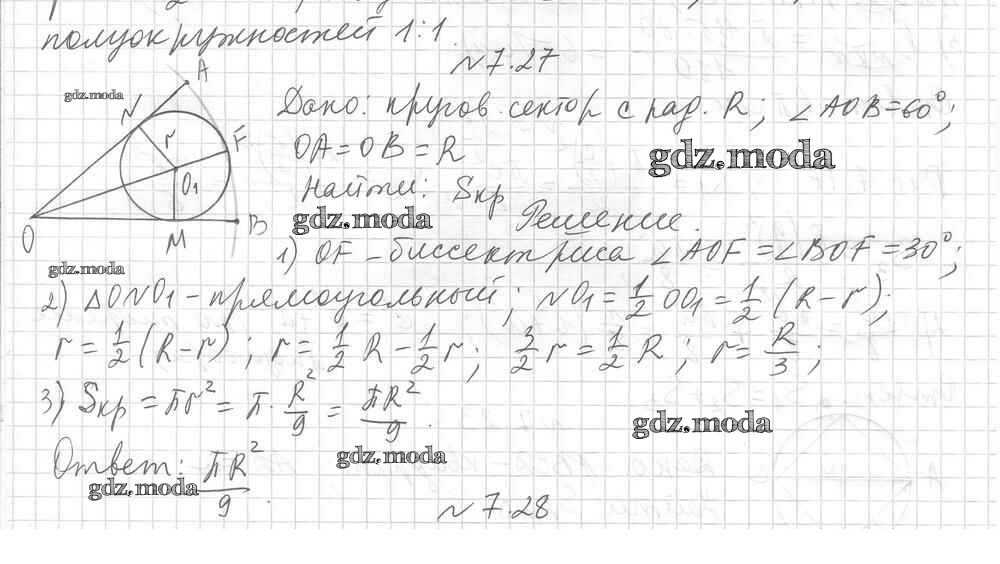 полуокружностей 1:1.
№7.27
A
gdz.moda
N
r
F
O₁
O
M
B
Дано: кругов. сектор с рад. R; ∠AOB=60°;
OA=OB=R
gdz.moda
Найти: Sкр
gdz.moda
Решение.
1) OF-биссектриса ∠AOF=∠BOF=30°;
gdz.moda
2) △ONO₁-прямоугольный; NO₁=1/2 OO₁=1/2 (R-r);
r=1/2 (R-r); r=1/2 R-1/2 r; 3/2 r=1/2 R; r=R/3;
3) Sкр=πr²=π·R²/9=πR²/9.
gdz.moda
Ответ: πR²/9.
gdz.moda
gdz.moda
№7.28